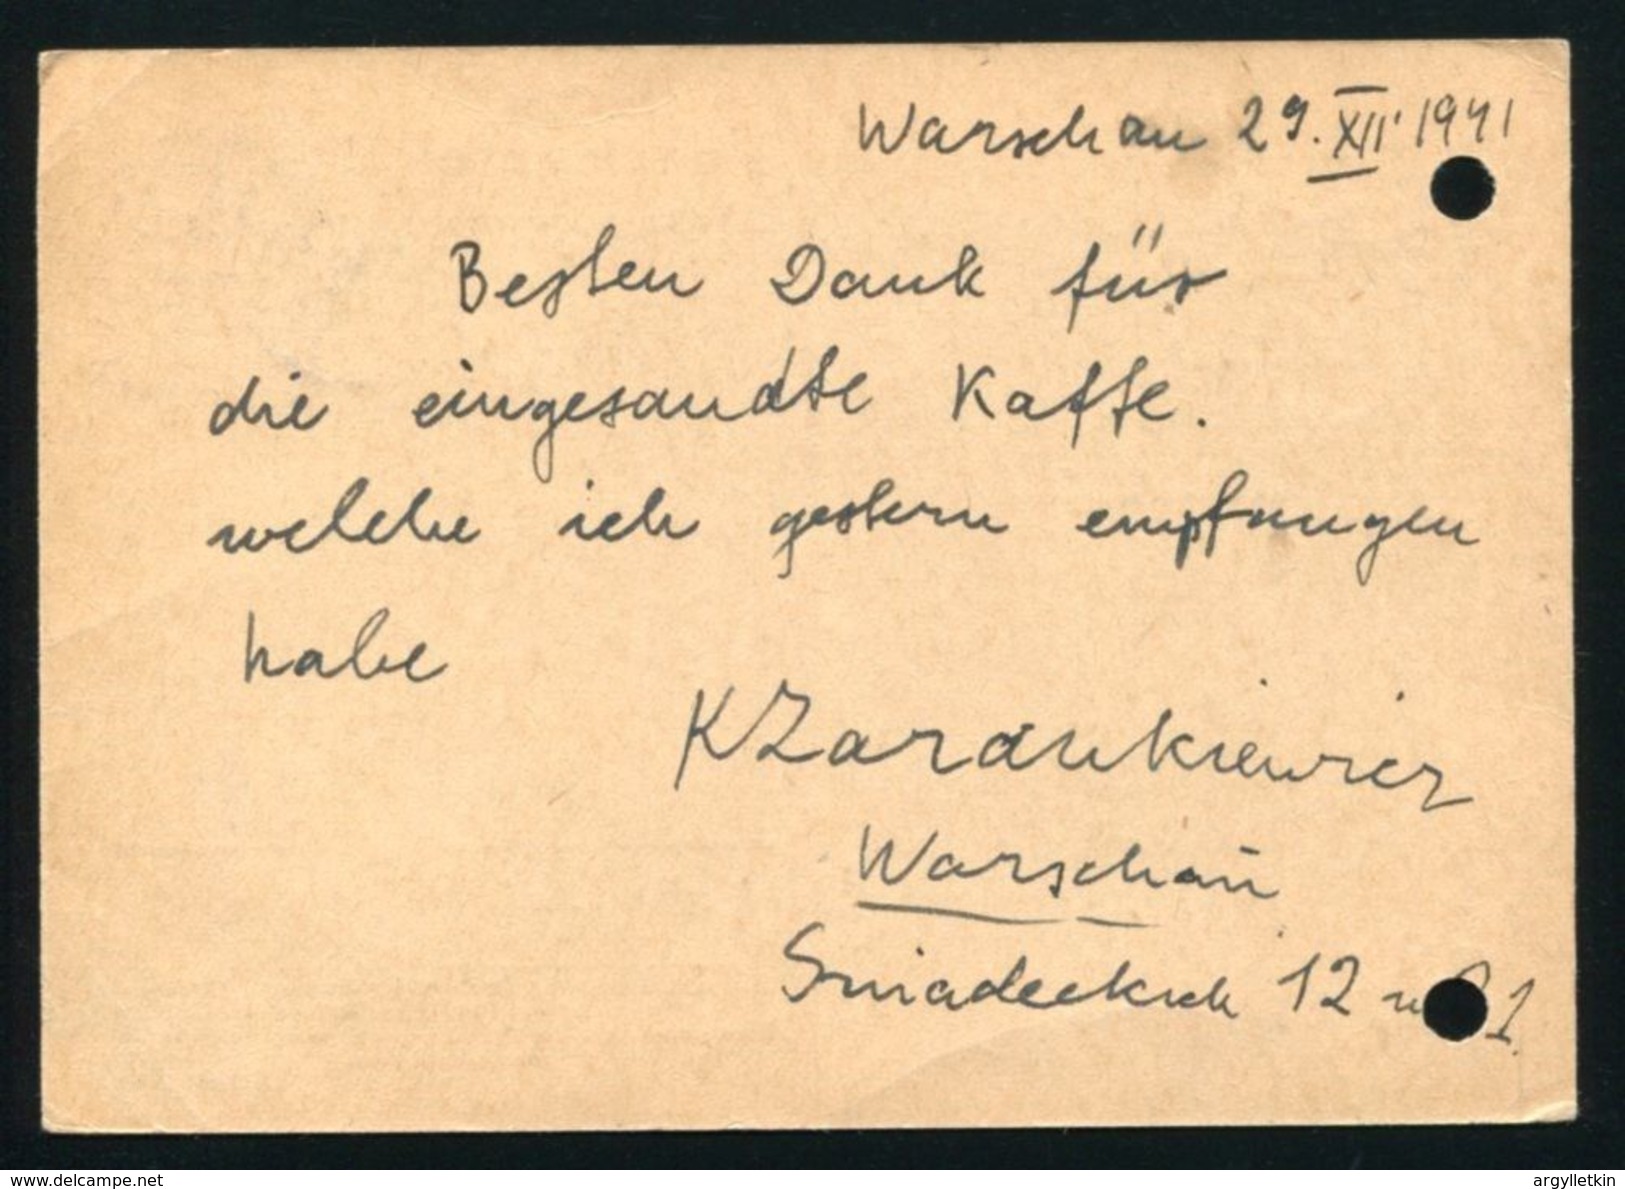 Warschau 29. XII 1941
Besten Dank für
die eingesandte Kaffe.
welche ich gestern empfangen
habe
KZarankiewicz
Warschau
Sniadeckich 12
www.delcampe.net
argylletkin